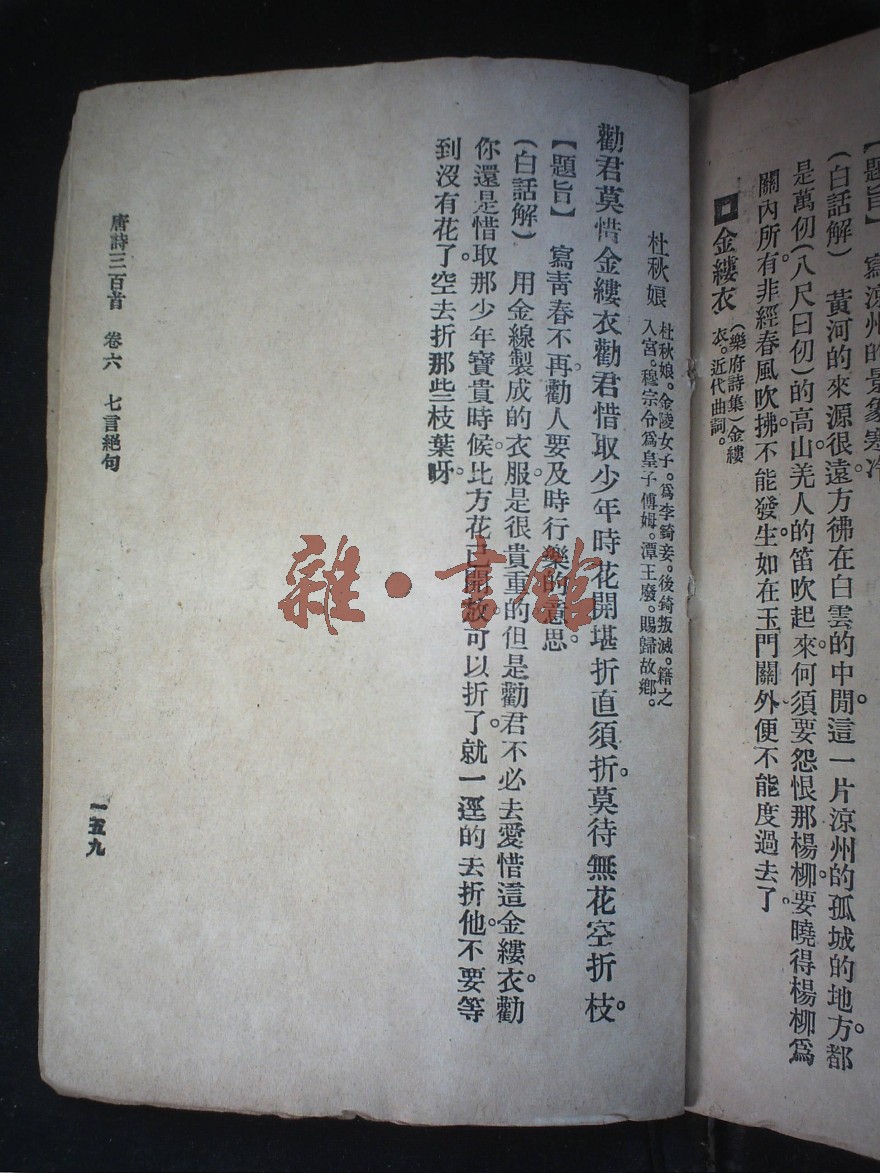 【題旨】　寫涼州的景象寒冷
(白話解)　黃河的來源很遠。方彿在白雲的中間。這一片涼州的孤城的地方。都
是萬仞(八尺曰仞)的高山。羌人的笛吹起來。何須要怨恨那楊柳。要曉得楊柳爲
關內所有。非經春風吹拂。不能發生。如在玉門關外。便不能度過去了。
金縷衣　(樂府詩集)金縷
衣。近代曲詞。
杜秋娘　杜秋娘。金陵女子。爲李錡妾。後錡叛滅。籍之
入宮。穆宗令爲皇子傅姆。漳王廢。賜歸故鄉。
勸君莫惜金縷衣勸君惜取少年時花開堪折直須折。莫待無花空折枝。
【題旨】　寫靑春不再。勸人要及時行樂的意思。
(白話解)　用金線製成的衣服。是很貴重的。但是勸君不必去愛惜這金縷衣。勸
你還是惜取那少年寶貴時候。比方花已開放。可以折了。就一逕的去折他。不要等
到沒有花了。空去折那些枝葉呀。
唐詩三百首　卷六　七言絕句
一五九
雜·書館